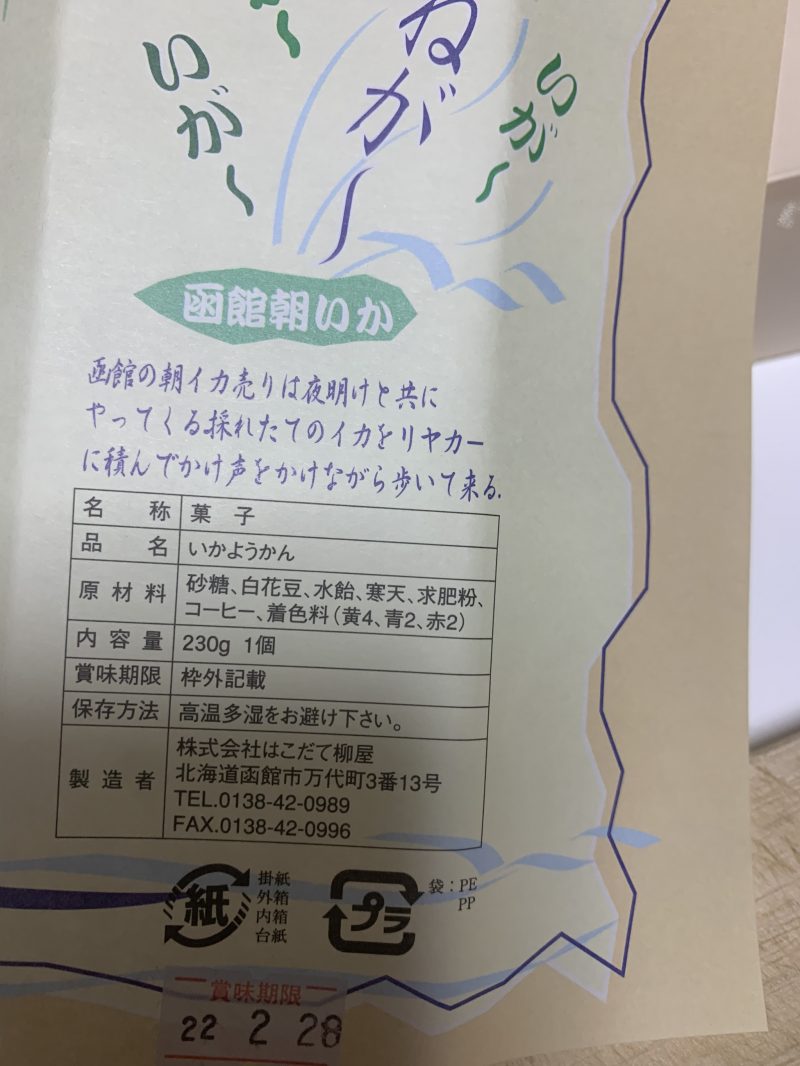 いが〜
ねがー
いが〜
函館朝いか
函館の朝イカ売りは夜明けと共に
やってくる採れたてのイカをリヤカー
に積んでかけ声をかけながら歩いて来る.
名称 菓子
品名 いかようかん
原材料 砂糖、白花豆、水飴、寒天、求肥粉、
コーヒー、着色料（黄4、青2、赤2）
内容量 230g 1個
賞味期限 枠外記載
保存方法 高温多湿をお避け下さい。
製造者 株式会社はこだて柳屋
北海道函館市万代町3番13号
TEL.0138-42-0989
FAX.0138-42-0996
紙
掛紙
外箱
内箱
台紙
プラ
袋：PE
PP
賞味期限
22 2 28